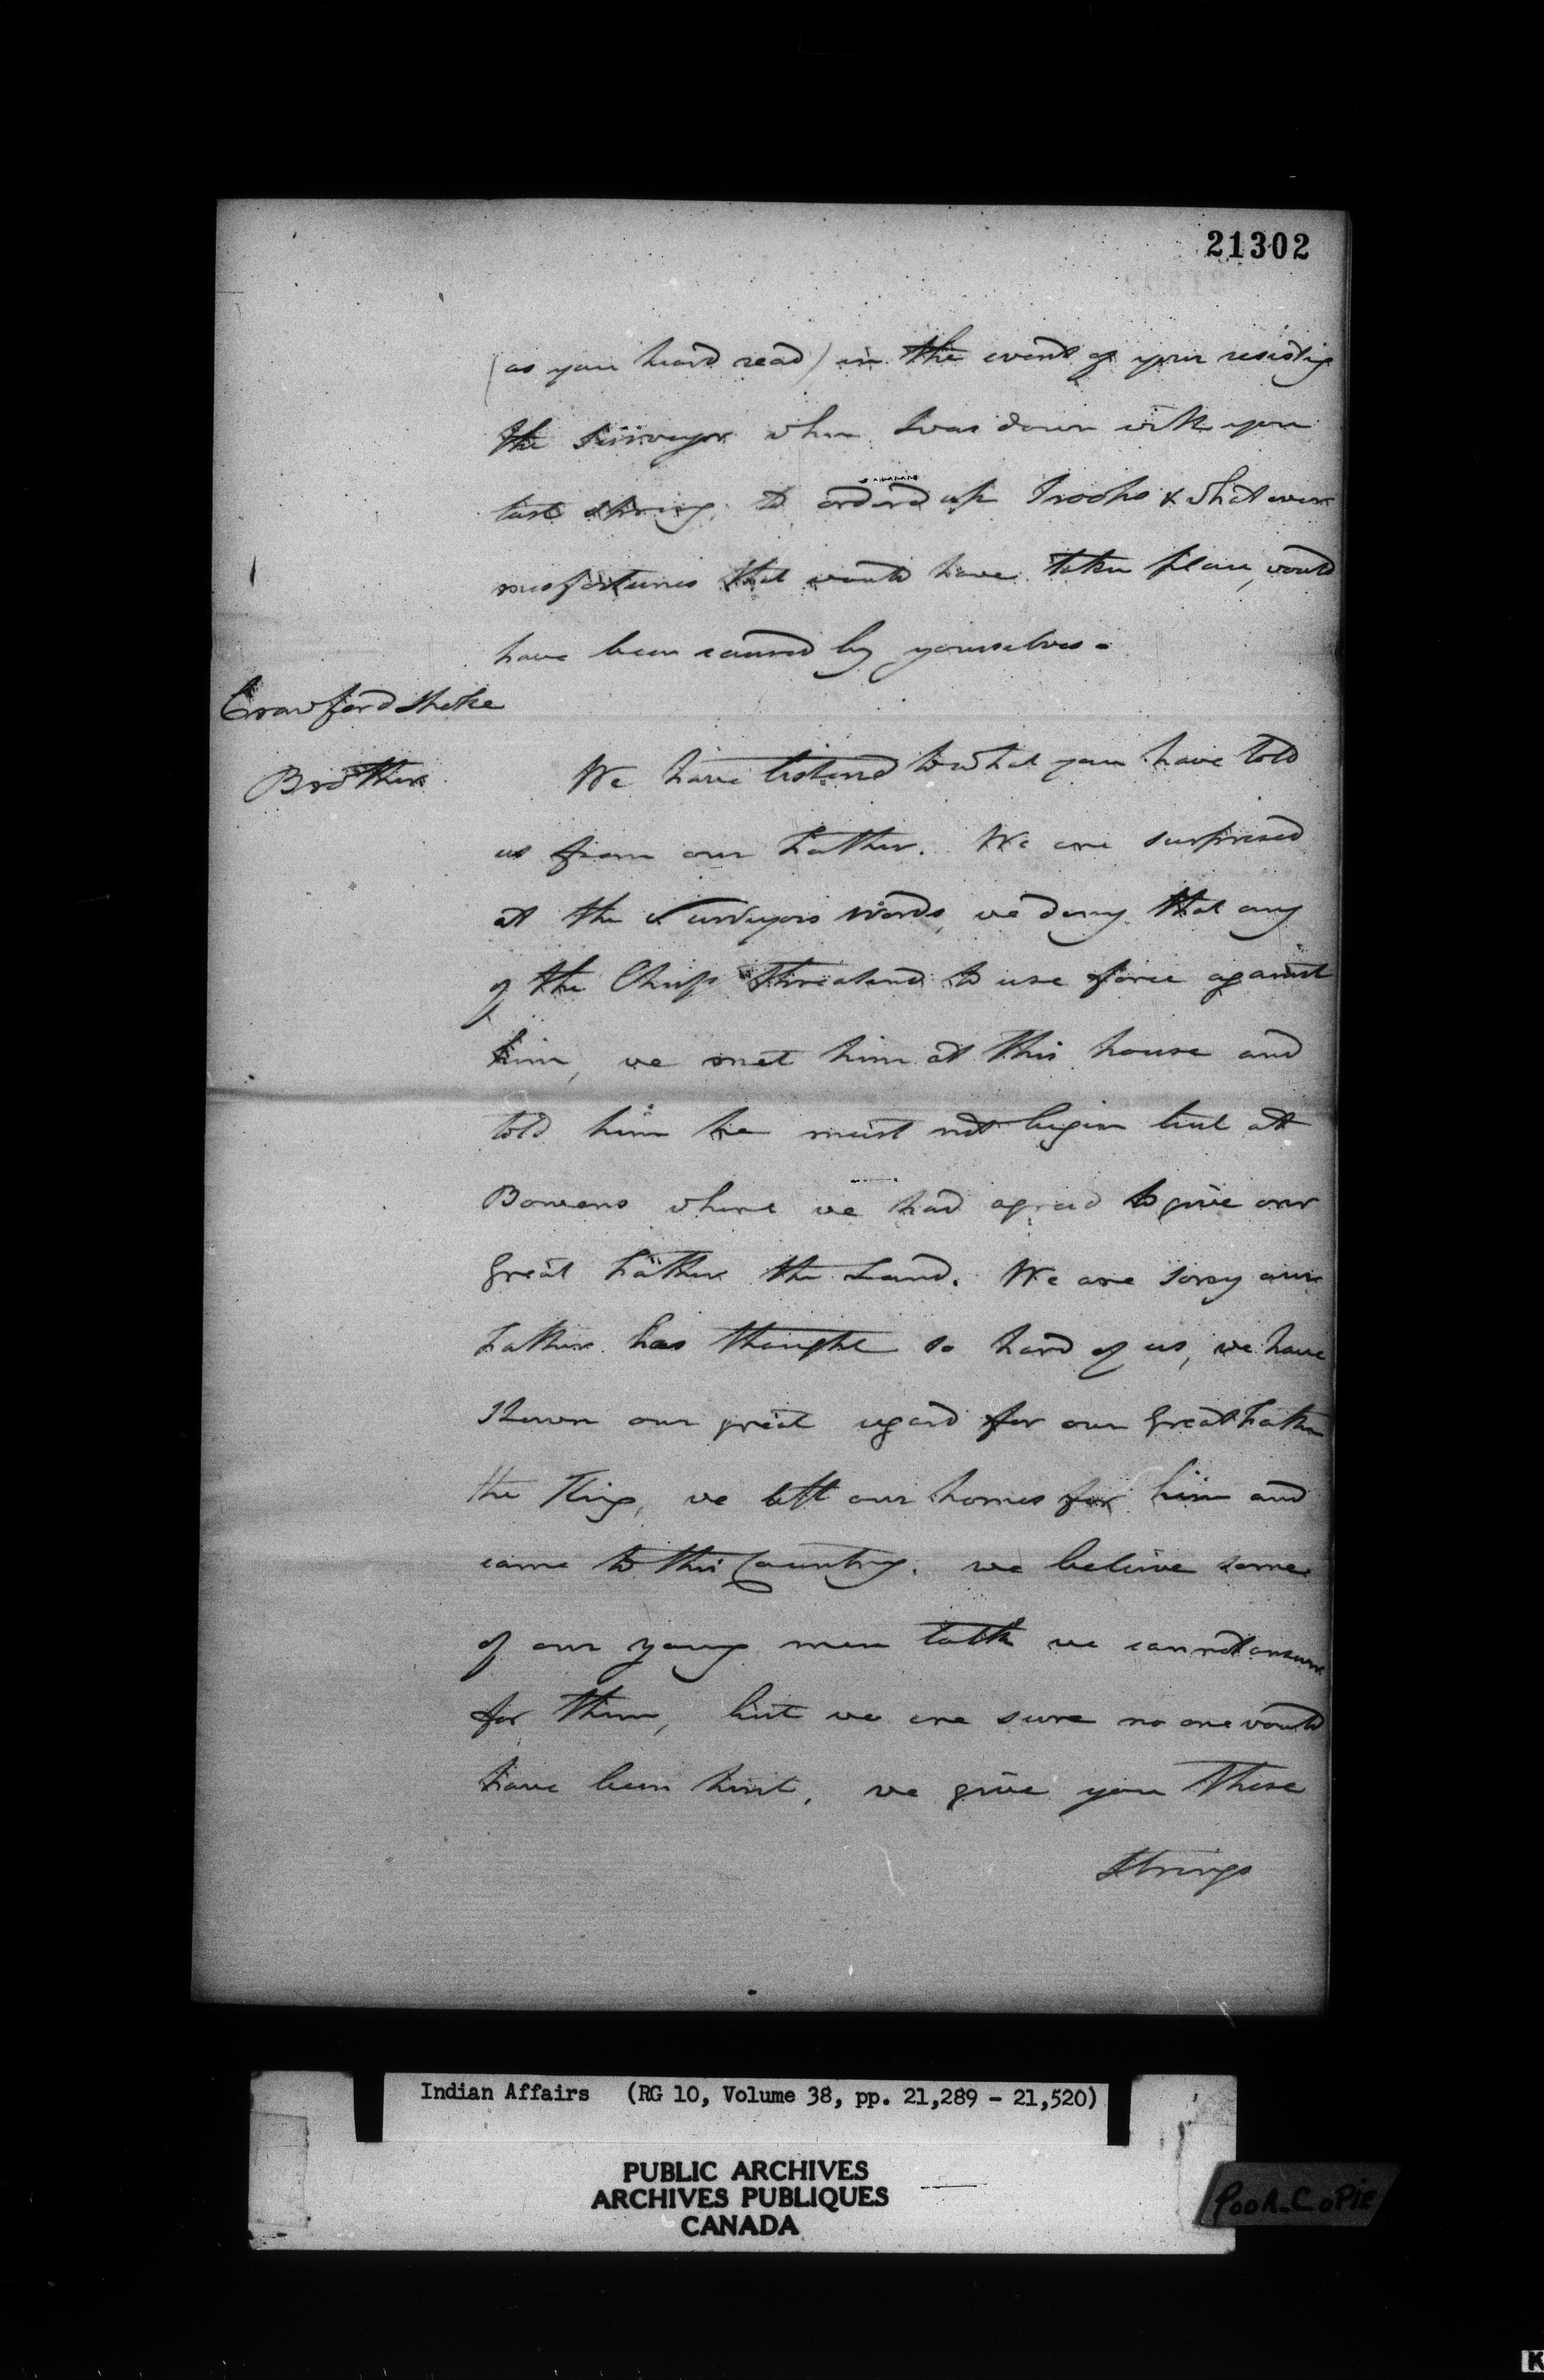 21302
(as you heard read) in the event of your resisting
the Surveyor when I was down with you
last Spring, to ordered up Troops & what ever
misfortunes that would have taken place, would
have been caused by yourselves.
Crawford Spoke
Brother
We have listened to what you have told
us from our Father. We are surprised
at the Surveyors words, we deny that any
of the Chiefs threatened to use force against
him, we met him at this house and
told him he must not begin but at
Bowens where we had agreed to give our
Great Father the Land. We are sorry our
Father has thought so hard of us, we have
Shewn our great regard for our Great Father
the King, we left our homes for him and
came to this Country. we believe some
of our young men talk we cannot answer
for them, but we are sure no one would
have been hurt, we give you these
Strings
Indian Affairs (RG 10, Volume 38, pp. 21,289 - 21,520)
PUBLIC ARCHIVES
ARCHIVES PUBLIQUES
CANADA
POOR COPIE
K